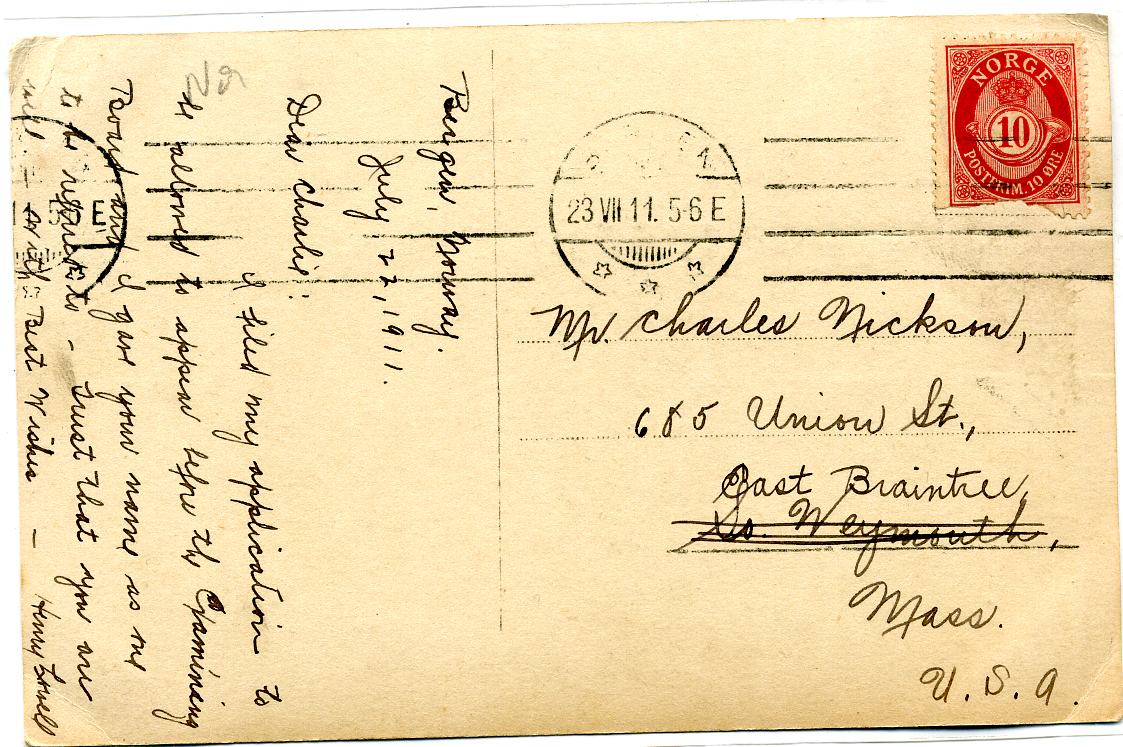 Bergen, Norway.
July 22, 1911.
Dear Charlie:
I filed my application to
be allowed to appear before the Examining
Board and I gave your name as one
to be referred to - Trust that you are
well - With Best Wishes -
Henry Lowell
Na
NORGE
10
POSTFRIM. 10 ØRE
23 VII 11. 5-6 E
E
Mr. Charles Nickson,
685 Union St.,
East Braintree,
So. Weymouth,
Mass.
U. S. A.